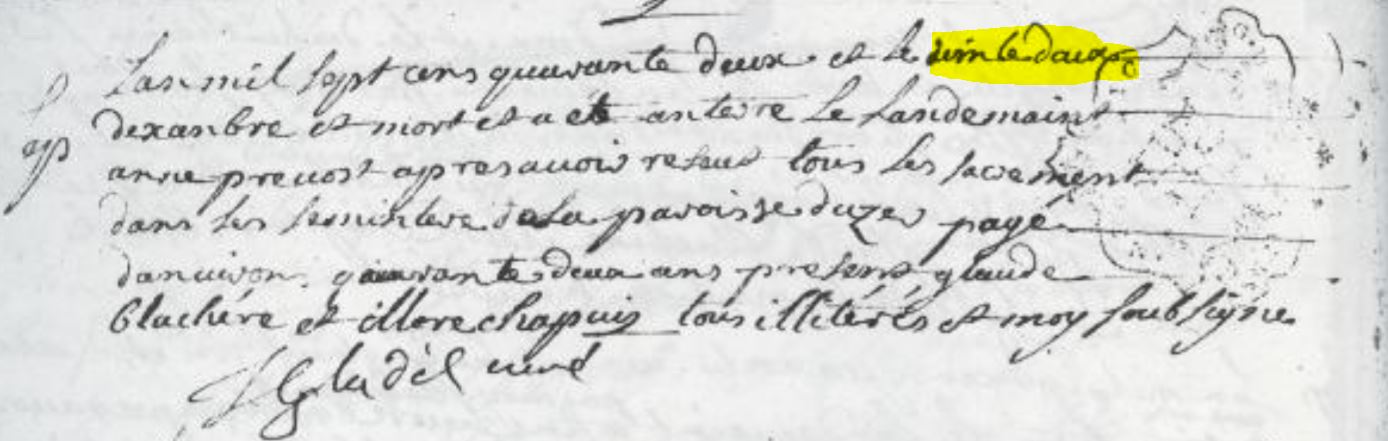 Lan mil sept cens quarante deux et le vinte daux
dexanbre et mort et a eté anterre le landemaint
anne prevost apres avoir reseus tous les sacrement
dans les semintere de la paroisse duzer pagé
danuiron quarante deux ans presens glaude
blachére et illere chapuis tous illitérés et moy soub signe
curé